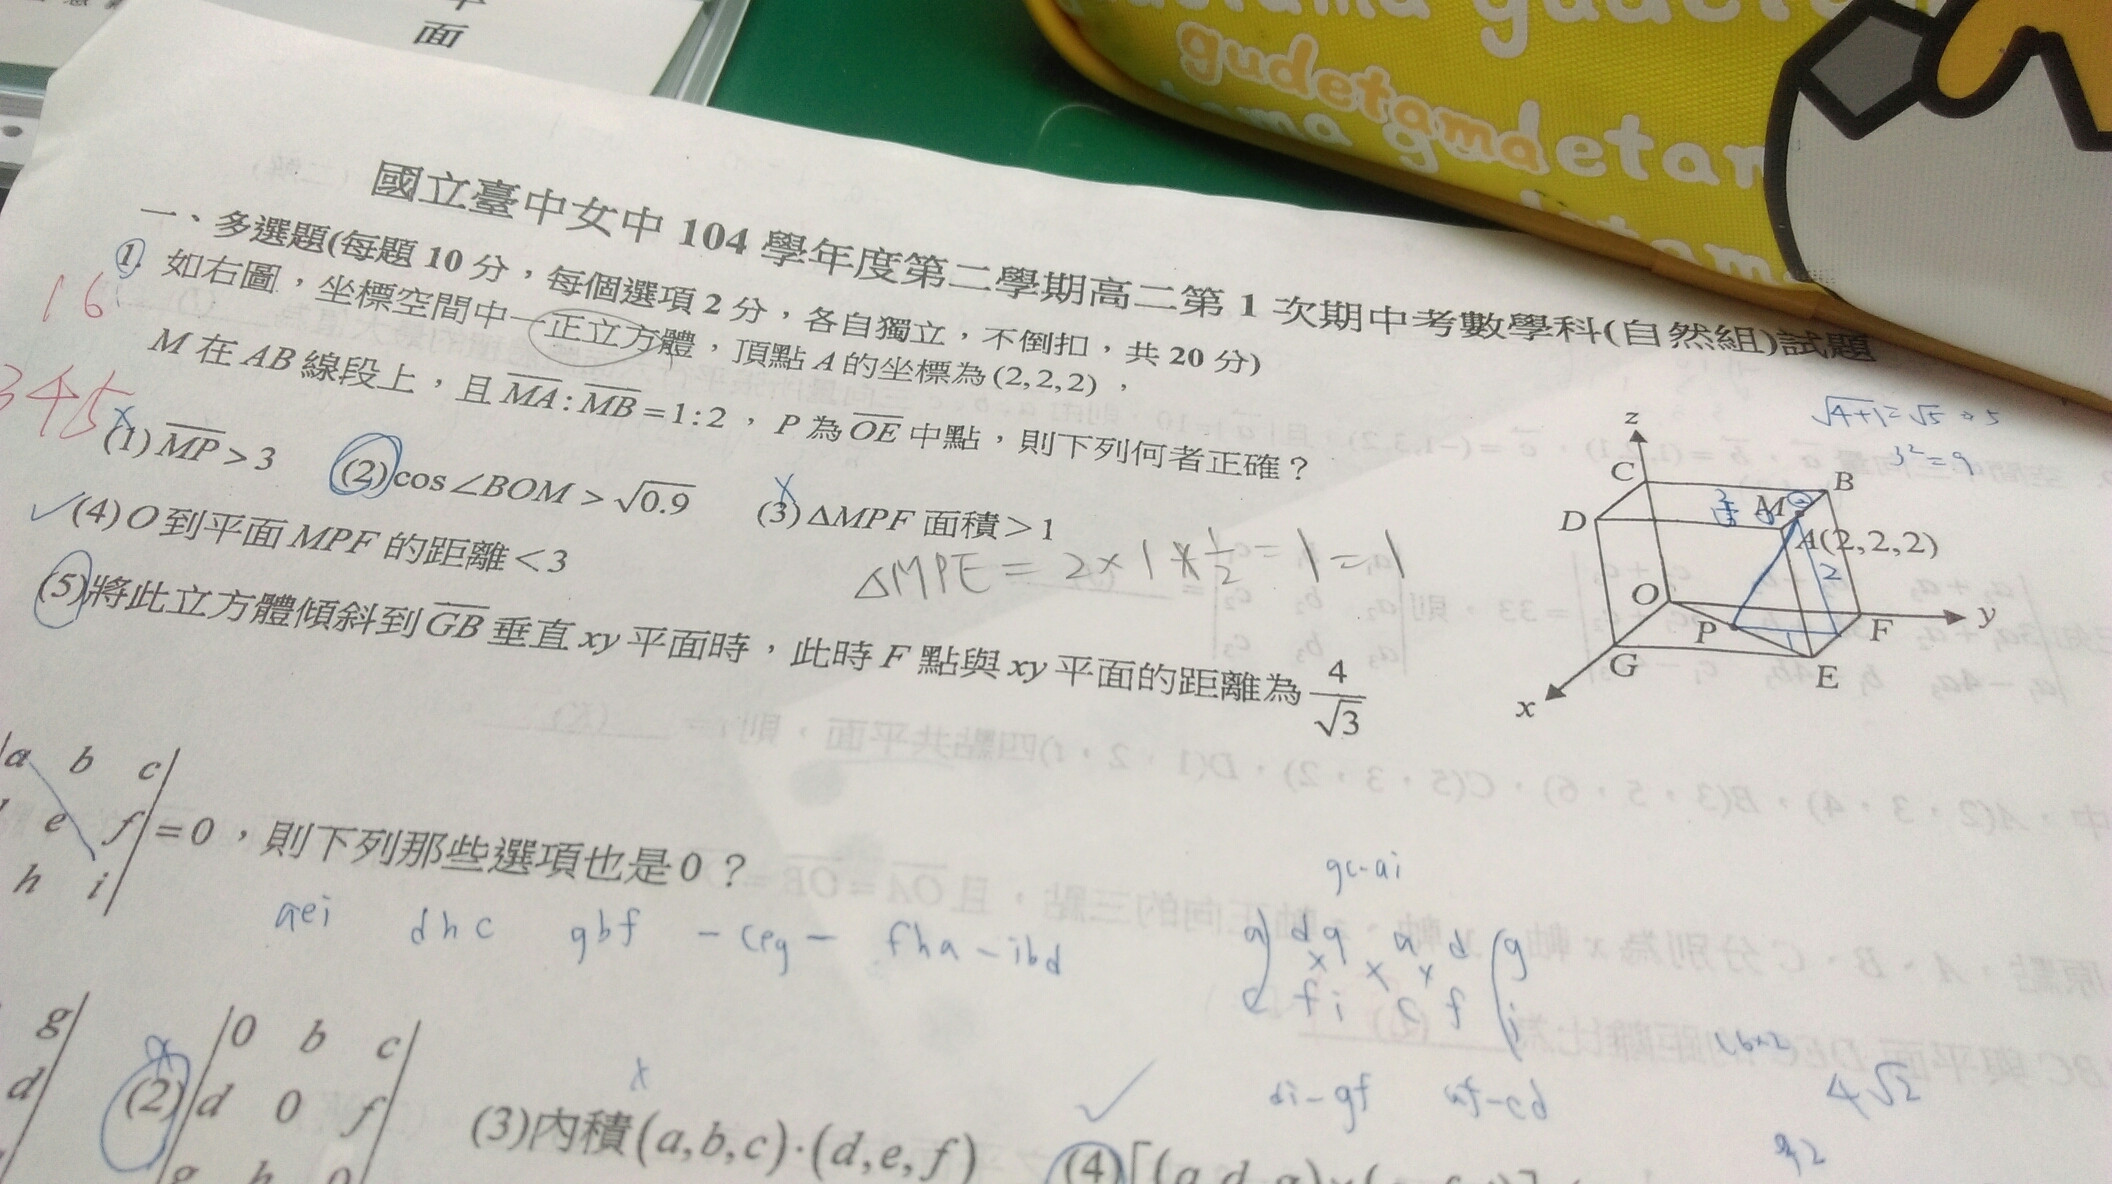 面
gudetama
gudetama
國立臺中女中 104 學年度第二學期高二第 1 次期中考數學科(自然組)試題
一、多選題(每題 10 分，每個選項 2 分，各自獨立，不倒扣，共 20 分)
1. 如右圖，坐標空間中一正立方體，頂點 A 的坐標為 (2,2,2)，
M 在 AB 線段上，且 MA : MB = 1 : 2，P 為 OE 中點，則下列何者正確？
(1) MP > 3 (2) cos∠BOM > √0.9 (3) ΔMPF 面積 > 1
(4) O 到平面 MPF 的距離 < 3
ΔMPE = 2 × 1 × 1/2 = 1 = 1
(5) 將此立方體傾斜到 GB 垂直 xy 平面時，此時 F 點與 xy 平面的距離為 4/√3
16
345
√4+1 = √5 → 5
3² = 9
z
C B
D M
A(2,2,2)
2
O y
P 1 F
G E
x
a b c
e f = 0，則下列那些選項也是 0？
h i
aei dhc gbf - ceg - fha - ibd
gc-ai
a d g a d g
c f i c f i
di-gf af-cd
4√2
g
d
(2) 0 b c
d 0 f
g h 0
(3)內積(a,b,c)·(d,e,f)
(4)